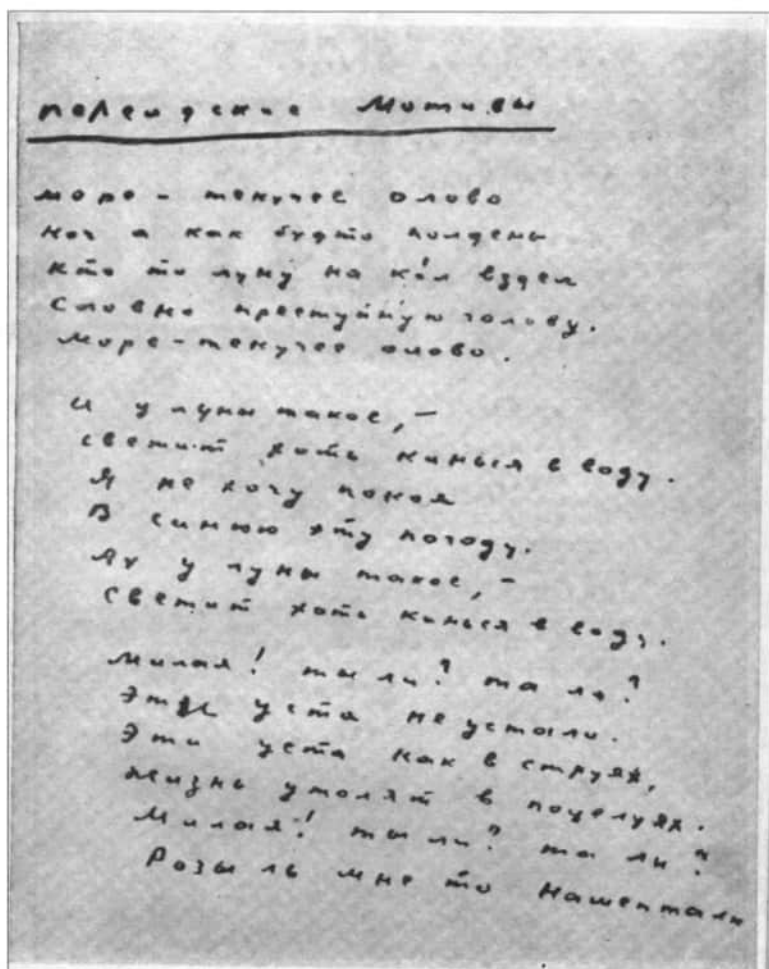 персидские Мотивы
море – текучее олово
ноч а как будто полдень
кто то луну на кол вздел
Словно преступную голову.
море-текучее олово.
и у луны такое, –
светит хоть кинься в воду.
Я не хочу покоя
В синюю эту погоду.
Ах у луны такое, –
светит хоть кинься в воду.
милая! ты ли? та ли?
Эти уста не устали.
Эти уста как в струях,
жизнь утолят в поцелуях.
Милая! ты ли? та ли?
Розы ль мне то нашептали